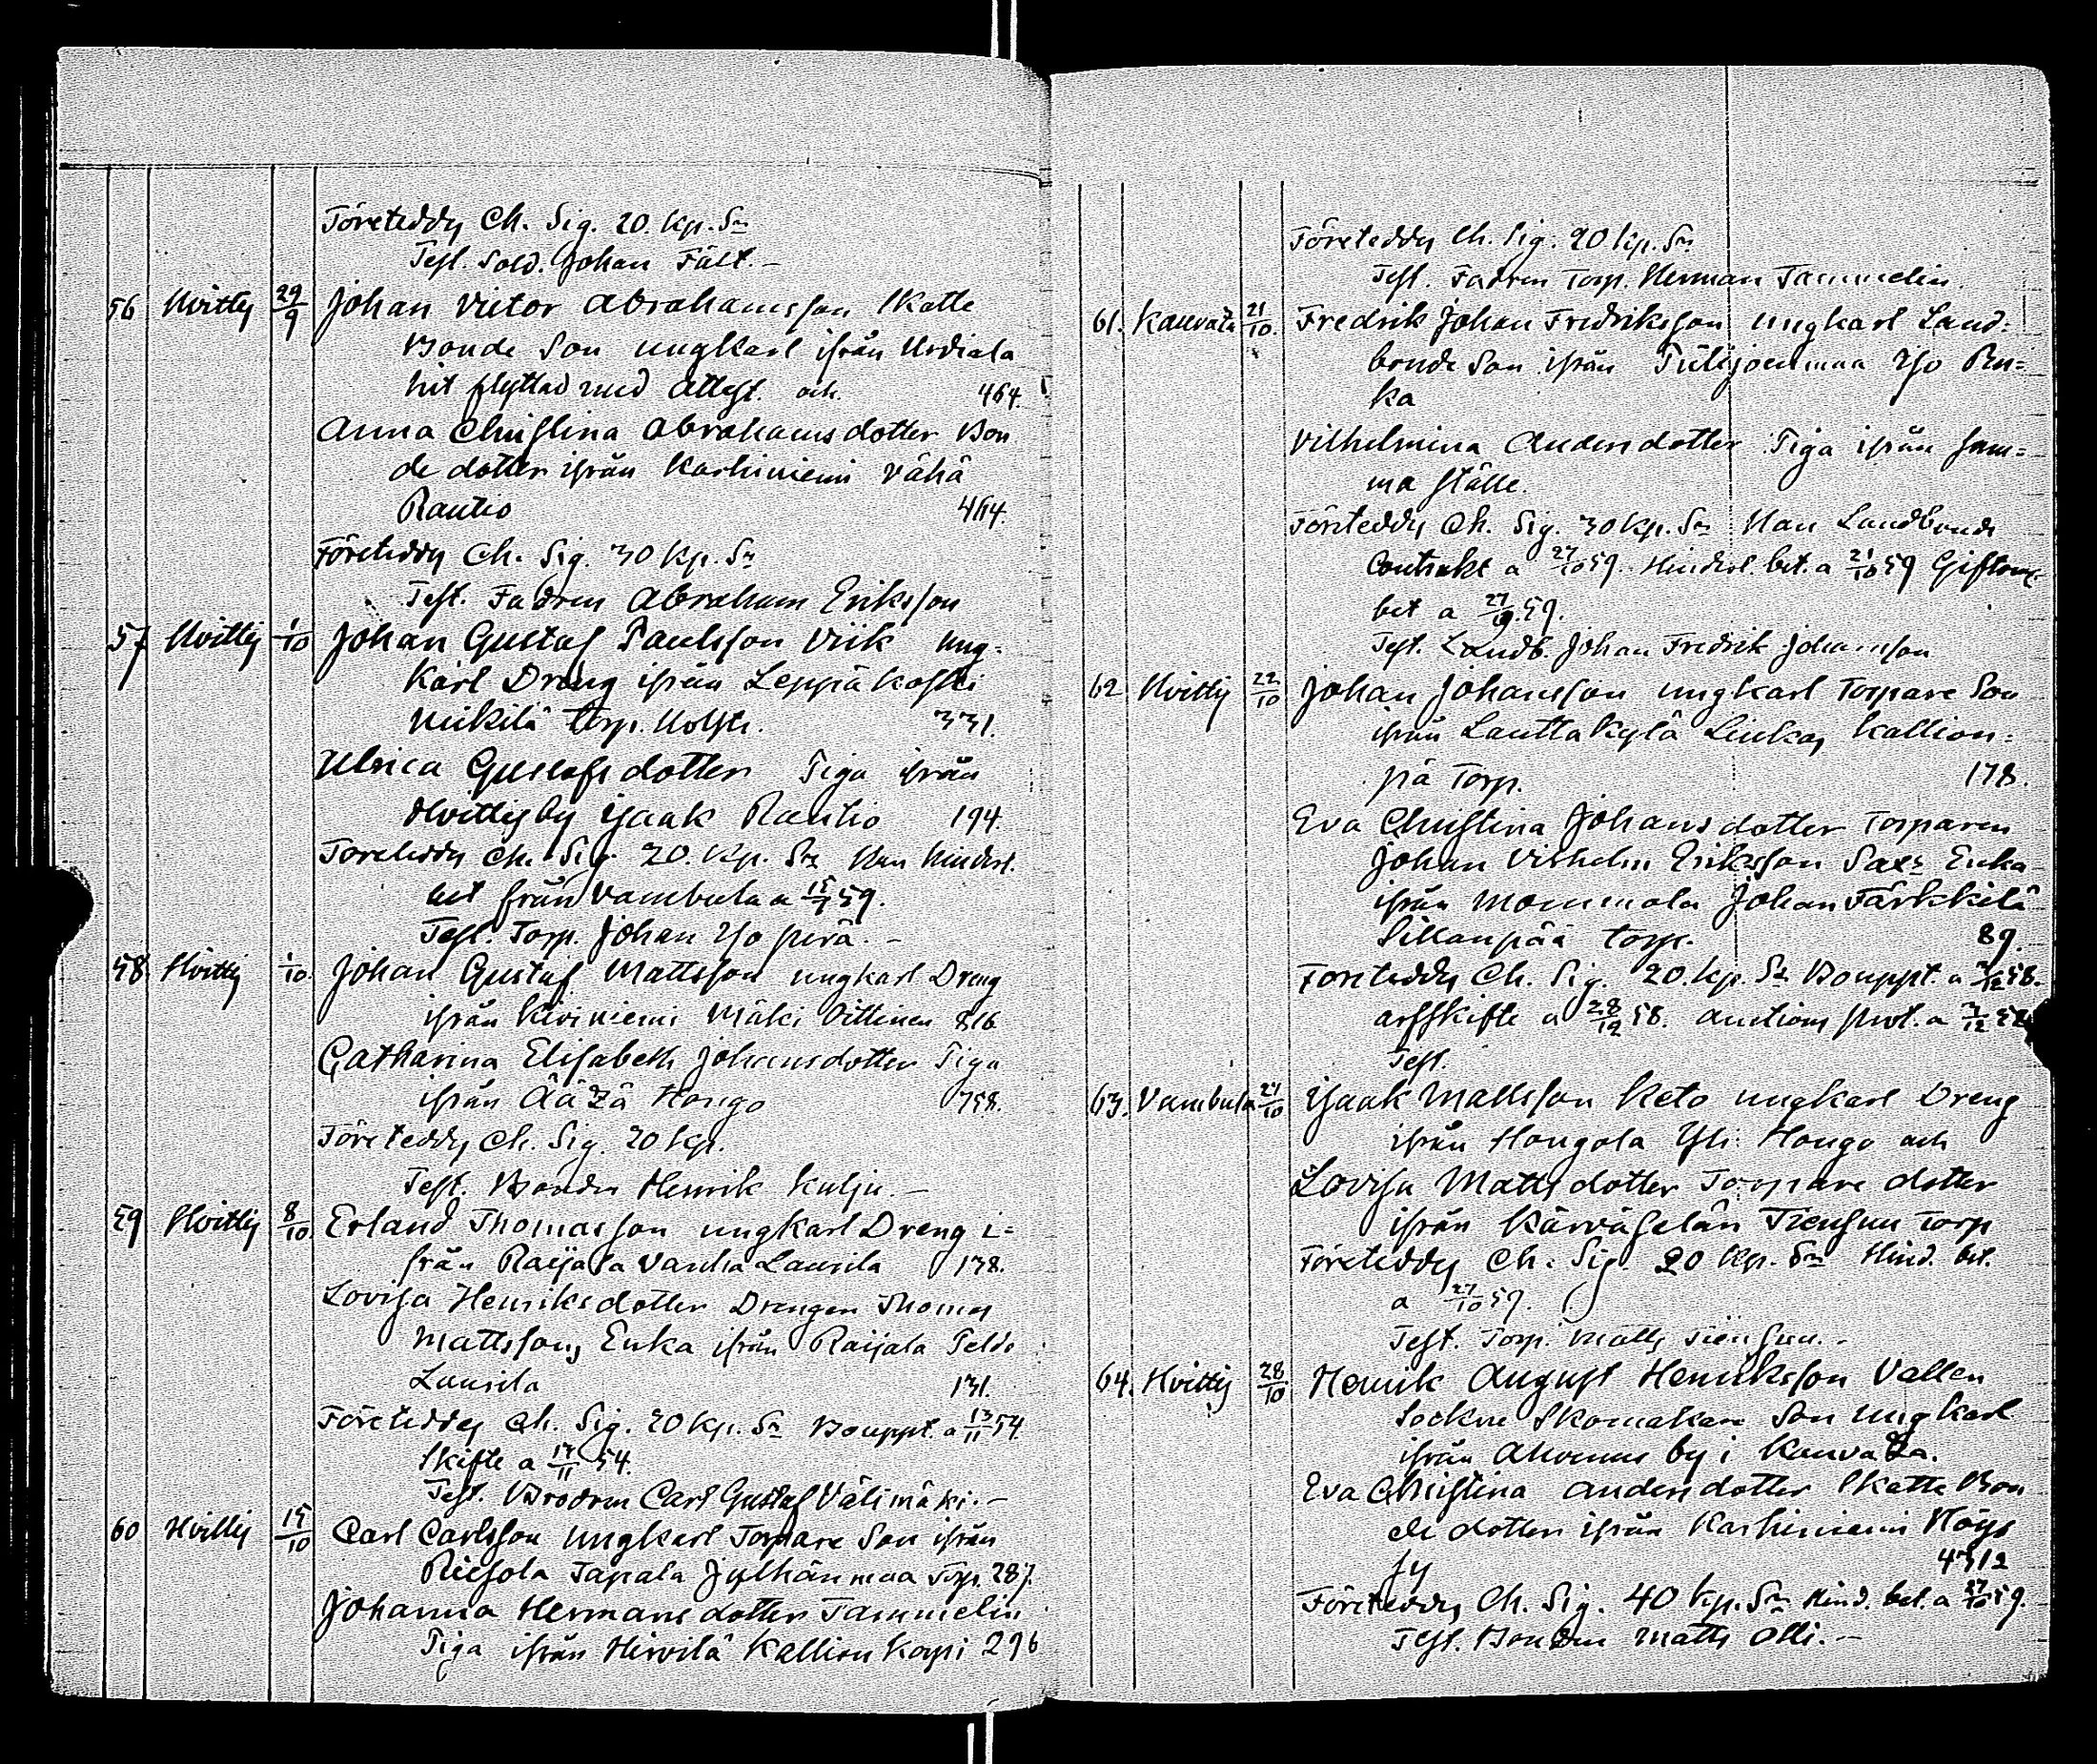 Företeddy Ch. Sig. 20. Kp. Sr
Test. Sold. Johan Fält. -
56 Hvittis 29/9 Johan Victor Abrahamsson Skatte
Bonde Son ungkarl ifrån Urdiala
hit flyttad med Attest. och 464.
Anna Christina Abrahamsdotter Bon
de dotter ifrån Karhiniemi Vähä
Rautio 464.
Företeddy Ch. Sig. 30 Kp. Sr
Test. Fadren Abraham Eriksson
57 Hvittis 1/10 Johan Gustaf Paulsson Viik ung-
karl Dräng ifrån Leppäkoski
torp. 331.
Ulrica Gustafsdotter Piga ifrån
Hvittisby Isaak Rautio 194.
Företeddy Ch. Sig. 20. Kp. Sr Han Hinderl.
bet från Vambula a 59.
Test. Torp. Johan Isoperä. -
58. Hvittis 1/10. Johan Gustaf Mattsson ungkarl Dreng
ifrån Kiviniemi Mäki Vittinen 816
Catharina Elisabeth Johansdotter Piga
ifrån Äätzä Hongo 758.
Företeddy Ch. Sig. 20 Kp.
Test. Bonden Henrik Kulju. -
59 Hvittis 8/10. Erland Thomasson ungkarl Dreng i-
från Raijala Vanha Laurila 138.
Lovisa Henriksdotter Drengen Thomas
Mattssons Enka ifrån Raijala Peldo
Laurila 131.
Företeddy Ch. Sig. 20 Kp. Sr Bouppt. a 13/11 54.
Skifte a 14/11 54.
Test. Brodren Carl Gustaf Välimäki. -
60 Hvittis 15/10 Carl Carlsson ungkarl Torpare Son ifrån
Riesola Tapala Jylhänmaa Torp. 287.
Johanna Hermansdotter Tammelin
Piga ifrån Hirvilä Kallionkorpi 296
Företeddy Ch. Sig. 20 Kp. Sr
Test. Fadren Torp. Herman Tammelin.
61. Kauvatz 21/10. Fredrik Johan Fredriksson ungkarl Land-
bonde Son ifrån Pülijoenmaa Iso Pu-
ka
Vilhelmina Andersdotter Piga ifrån sam-
ma ställe.
Företeddy Ch. Sig. 30 Kp. Sr Han Landbonde
Contrakt a 27/10 59. Hinderl. bet. a 21/10 59 Giftom.
bet a 59.
Test. Landb. Johan Fredrik Johansson
62 Hvittis 22/10 Johan Johansson ungkarl Torpare Son
ifrån Lauttakylä Liuka, Kallion-
pä Torp. 178.
Eva Christina Johansdotter Torparen
Johan Vilhelm Eriksson Enka
ifrån Mommola Johan Färkkilä
Sillanpää torp. 89.
Företeddy Ch. Sig. 20. Kp. Sr Bouppt. a 58.
arfskifte a 28/12 58. auctions prot. a
Test.
63. Vambula 21/10 Isaak Mattsson Keto ungkarl Dreng
ifrån Hongola Yli Hongo och
Lovisa Mattsdotter Torpare dotter
ifrån Kärväselän Tiensuu Torp
Företeddy Ch. Sig. 20 Kp. Sr Hind. bet.
a 21/10 59.
Test. Torp. Matts Tiensuu. -
64. Hvittis 28/10 Henrik August Henriksson Vallen
Sockne Skomakare Son ungkarl
ifrån Ahvenus by i Kauvatza.
Eva Christina Andersdotter Skatte Bon
de dotter ifrån Karhiniemi Höys
sy 4312
Företeddy Ch. Sig. 40 Kp. Sr Hind. bet. a 59.
Test. Bonden Matts Olli. -